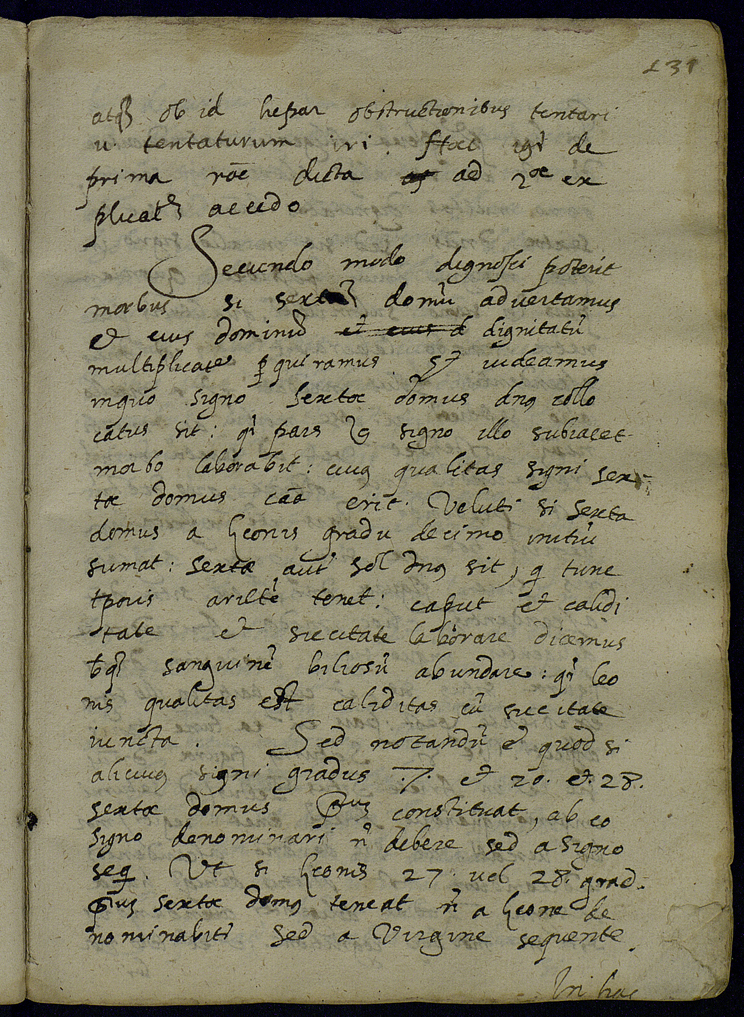 131
atq₃ ob id hepar obstructionibus tentari
u. tentaturum iri. Haec igr̃ de
prima roẽ dicta ad 2ae ex
plicat accedo
Secundo modo dignosci poterit
morbus si sextã domũ advertamus
et eius dominũ et eius d dignitatũ
multiplicate p̱quiramus. Et uideamus
inquo signo sextae domus dñs collo
catus sit: q̃ pars signo illo subiacet
morbo laborabit: cuius qualitas signi sex-
tae domus cãa erit. Veluti si sexta
domus a Leonis gradu decimo initiũ
sumat: sextae aut̃ Sol dñs sit, q̃ tunc
tp̃oris arietẽ tenet: caput et calidi
tate et siccitate laborare dicemus
sanguinẽ biliosũ abundare: q̃ leo
nis qualitas est caliditas cũ siccitate
iuncta. Sed notandũ ẽ quod si
alicuius signi gradus .7. et 20. et 28.
sextae domus constituat, ab eo
signo denominari ñ debere sed a signo
seq. Ut si Leonis 27. vel 28. grad.
sextae domus teneat ñ a Leone de
nominabit̃ sed a Virgine sequente.
In hac